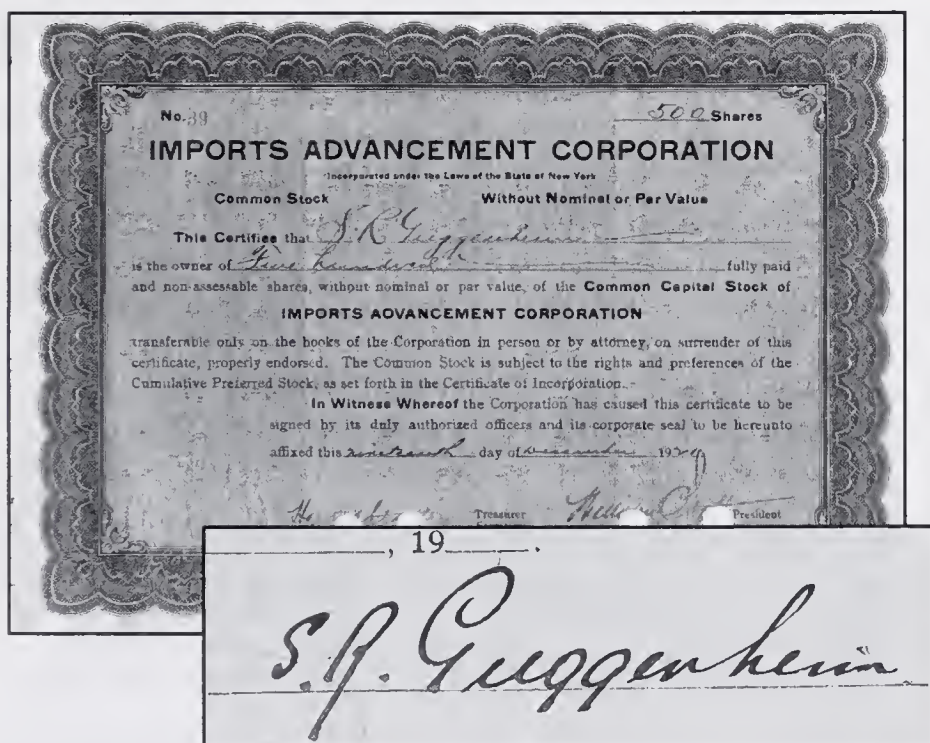 No. 39 500 Shares
IMPORTS ADVANCEMENT CORPORATION
Incorporated under the Laws of the State of New York
Common Stock Without Nominal or Par Value
This Certifies that S. R. Guggenheim
is the owner of Five hundred fully paid
and non-assessable shares, without nominal or par value, of the Common Capital Stock of
IMPORTS ADVANCEMENT CORPORATION
transferable only on the books of the Corporation in person or by attorney, on surrender of this
certificate, properly endorsed. The Common Stock is subject to the rights and preferences of the
Cumulative Preferred Stock, as set forth in the Certificate of Incorporation.
In Witness Whereof the Corporation has caused this certificate to be
signed by its duly authorized officers and its corporate seal to be hereunto
affixed this nineteenth day of December 1929
Treasurer President
, 19 .
S. R. Guggenheim